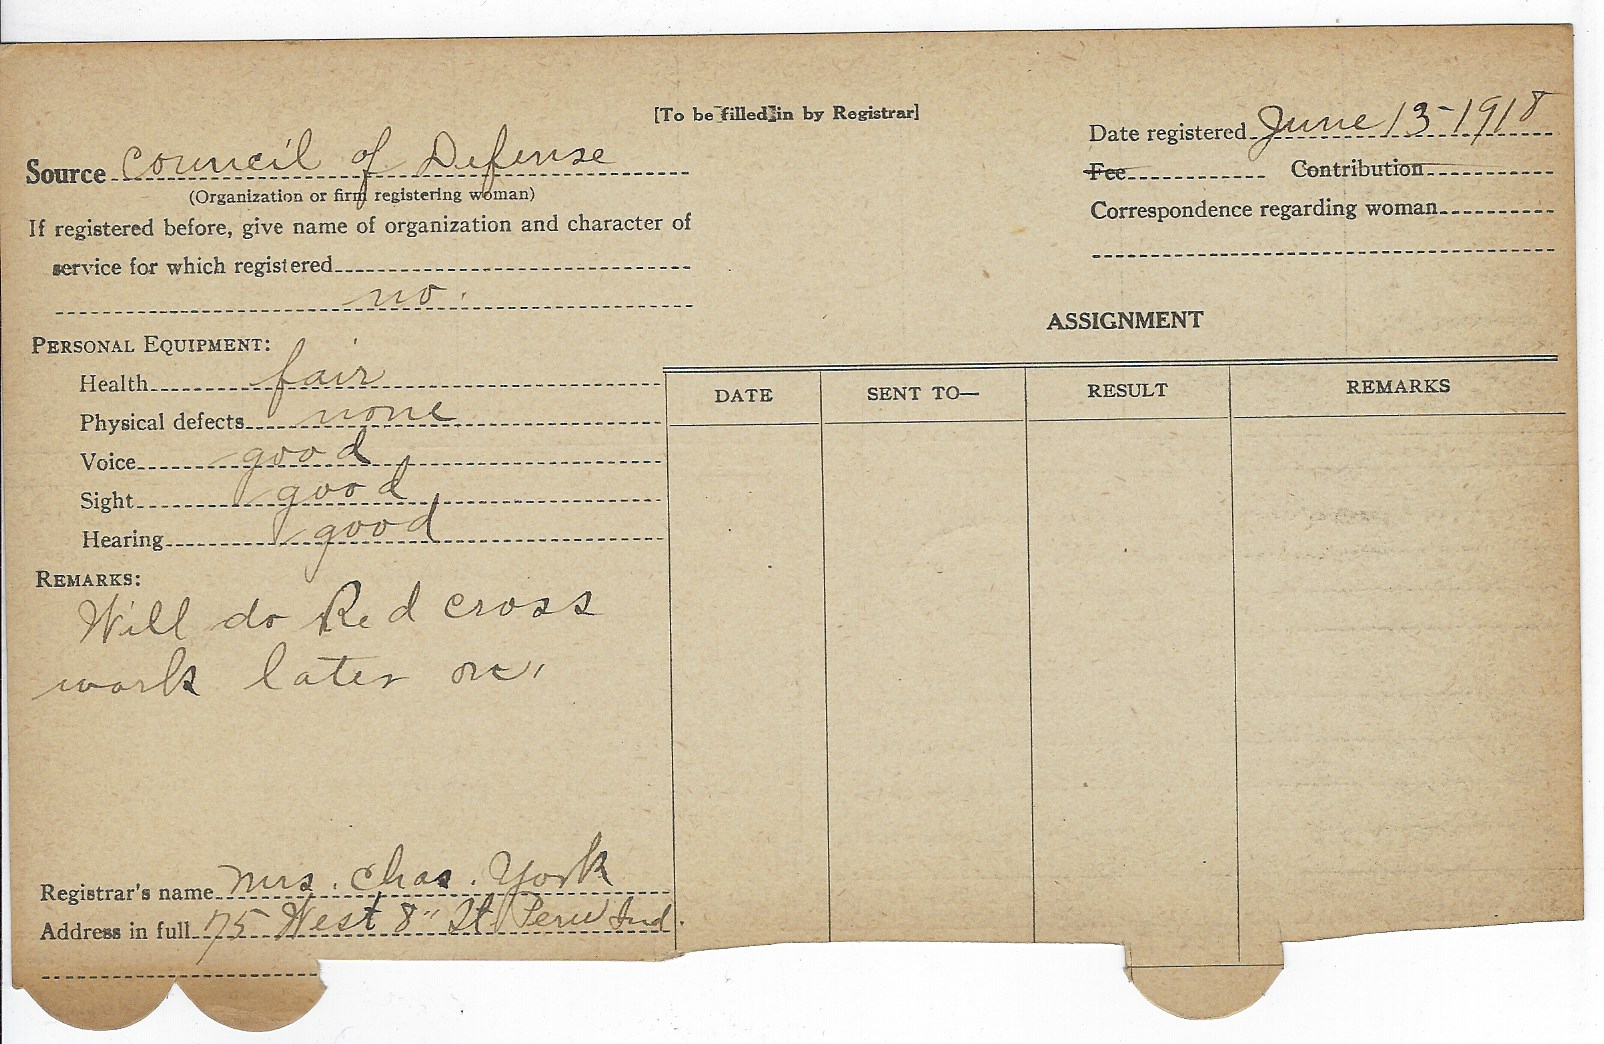 [To be filled in by Registrar]
Date registered June 13-1918
Source Council of Defense
(Organization or firm registering woman)
Fee Contribution
If registered before, give name of organization and character of
service for which registered
no.
Correspondence regarding woman
ASSIGNMENT
PERSONAL EQUIPMENT:
Health fair
Physical defects none
Voice good
Sight good
Hearing good
DATE SENT TO— RESULT REMARKS
REMARKS:
Will do Red cross
work later on.
Registrar's name Mrs. Chas. York
Address in full 175 West 8" St. Peru Ind.